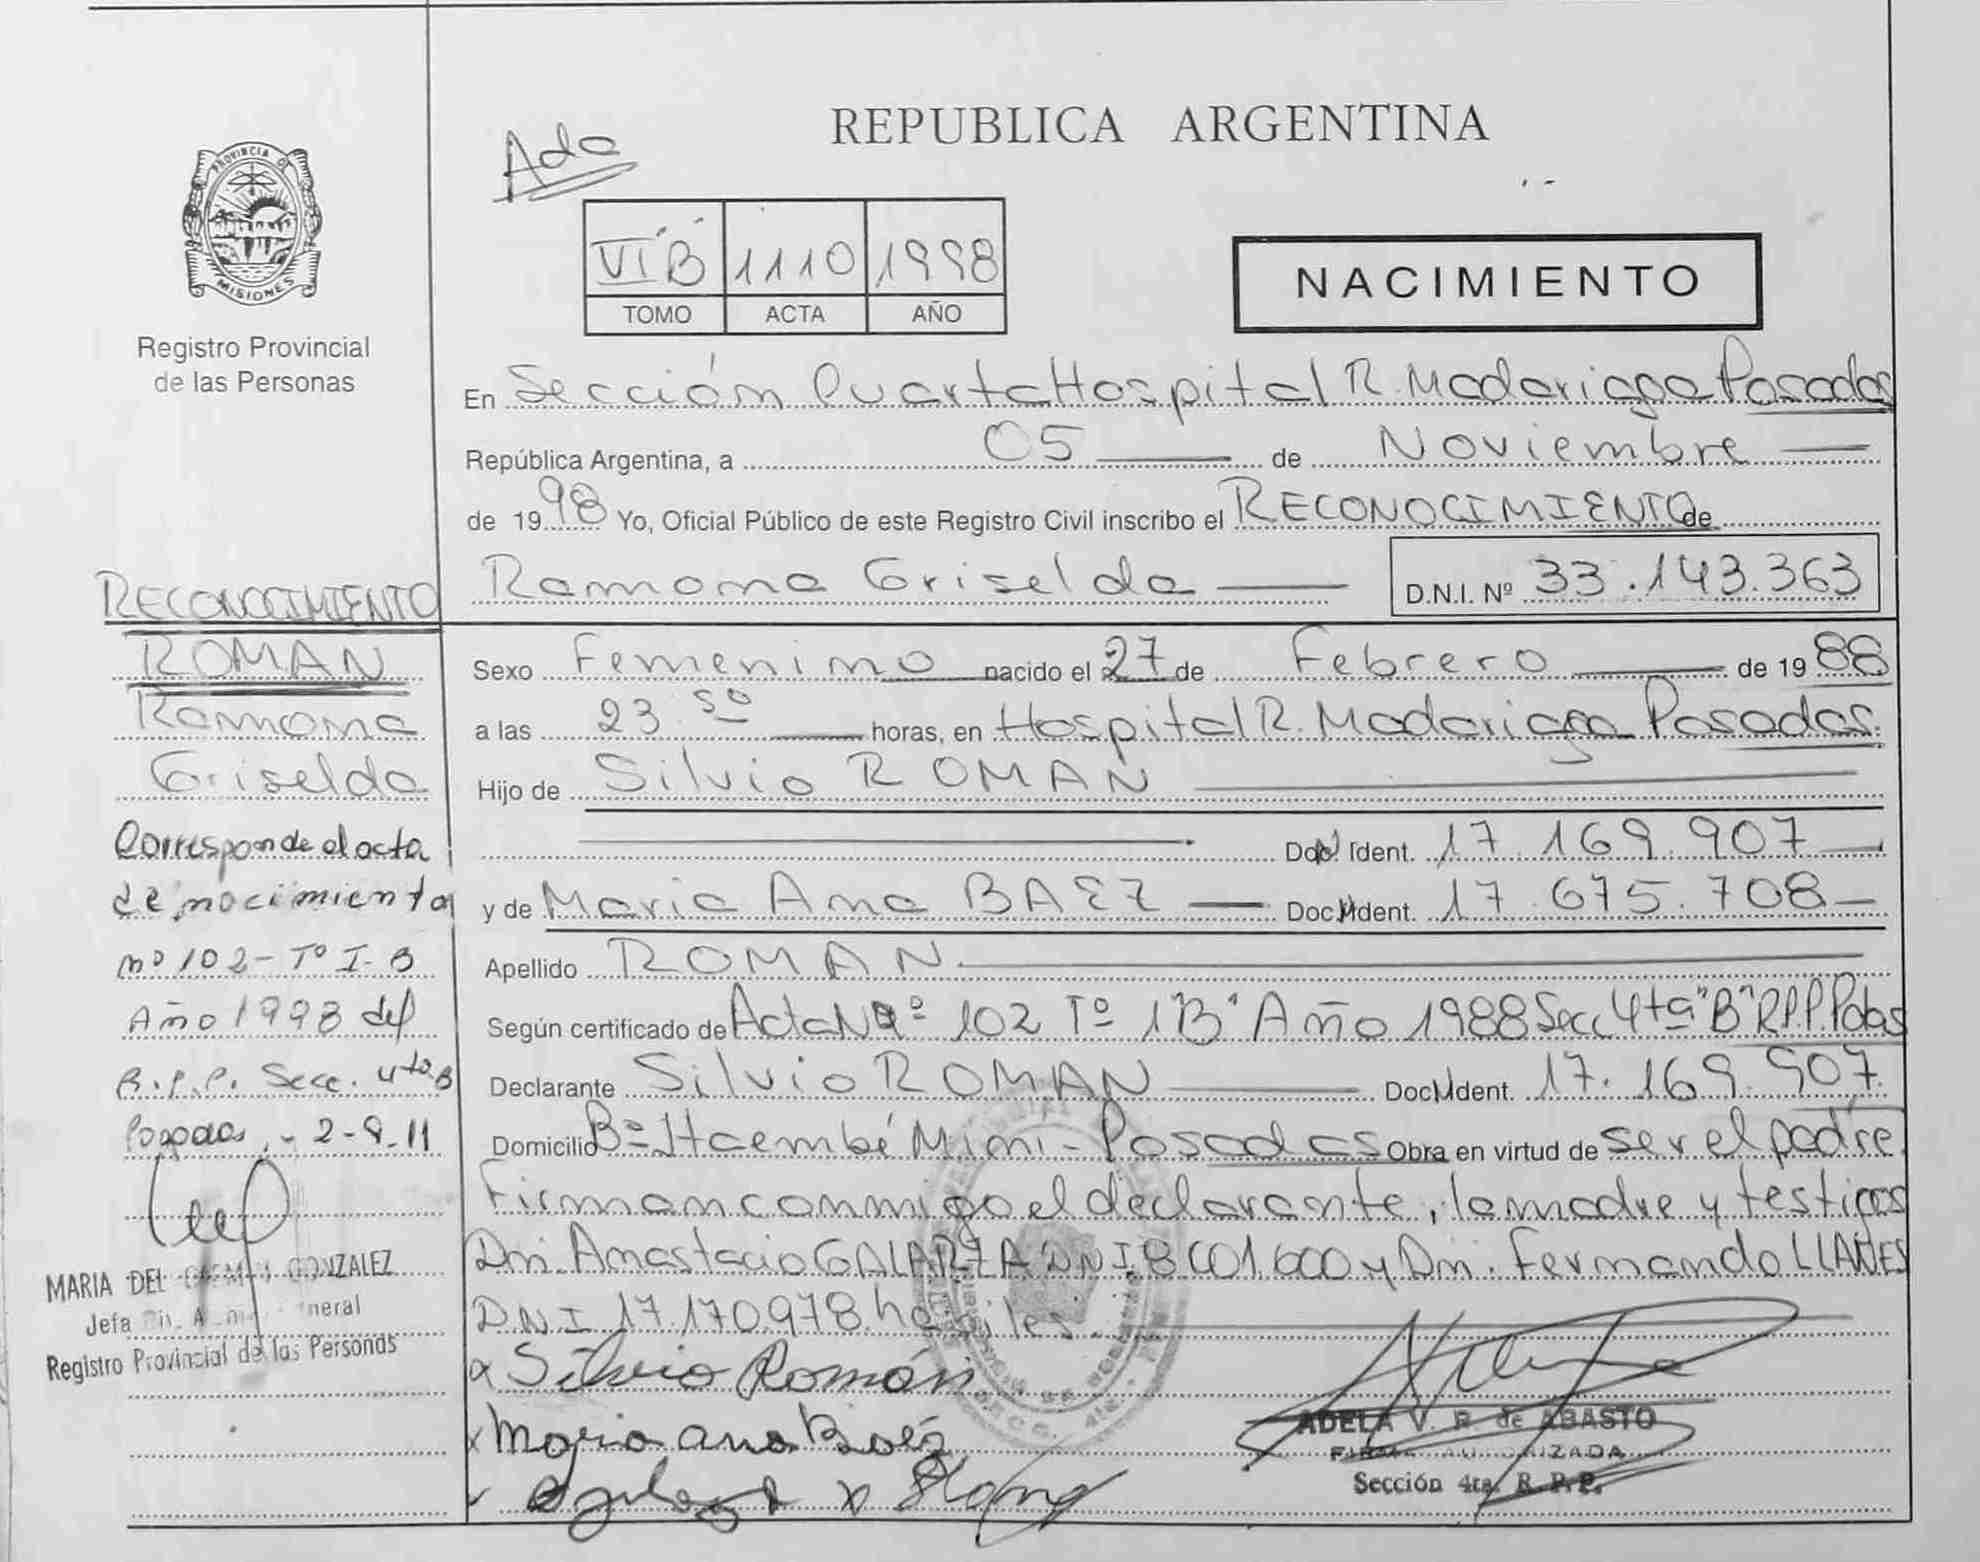 REPUBLICA ARGENTINA
Ada
PROVINCIA D
MISIONES
Registro Provincial
de las Personas
VI B 1110 1998
TOMO ACTA AÑO
NACIMIENTO
En Sección Cuarta Hospital R. Madariaga Posadas
República Argentina, a 05 de Noviembre
de 1998 Yo, Oficial Público de este Registro Civil inscribo el RECONOCIMIENTO de
Ramona Griselda D.N.I. Nº 33.143.363
Sexo Femenino nacido el 27 de Febrero de 1988
a las 23 50 horas, en Hospital R. Madariaga Posadas.
Hijo de Silvio ROMAN
Doc Ident. 17.169.907
y de Maria Ana BAEZ Doc Ident. 17.675.708
Apellido ROMAN
Según certificado de Acta Nº 102 Tº 1 "B" Año 1988 Secc 4ta "B" R.P.P. Pdas
Declarante Silvio ROMAN Doc Ident. 17.169.907
Domicilio Bº Itaembé Mini - Posadas Obra en virtud de ser el padre
Firman conmigo el declarante, la madre y testigos
Dn. Anastacio GALARZA DNI 8.001.600 y Dn. Fernando LLANES
DNI 17.170.978 hábiles.
Silvio Román
Maria ana Baéz
ADELA V. R. de ABASTO
FIRMA AUTORIZADA
Sección 4ta. R. P. P.
RECONOCIMIENTO
ROMAN
Ramona
Griselda
Corresponde al acta
de nacimiento
nº 102 - Tº I - B
Año 1998 del
R.P.P. Secc. 4ta B
Posadas, - 2-9-11
MARIA DEL CARMEN GONZALEZ
Jefa General
Registro Provincial de las Personas